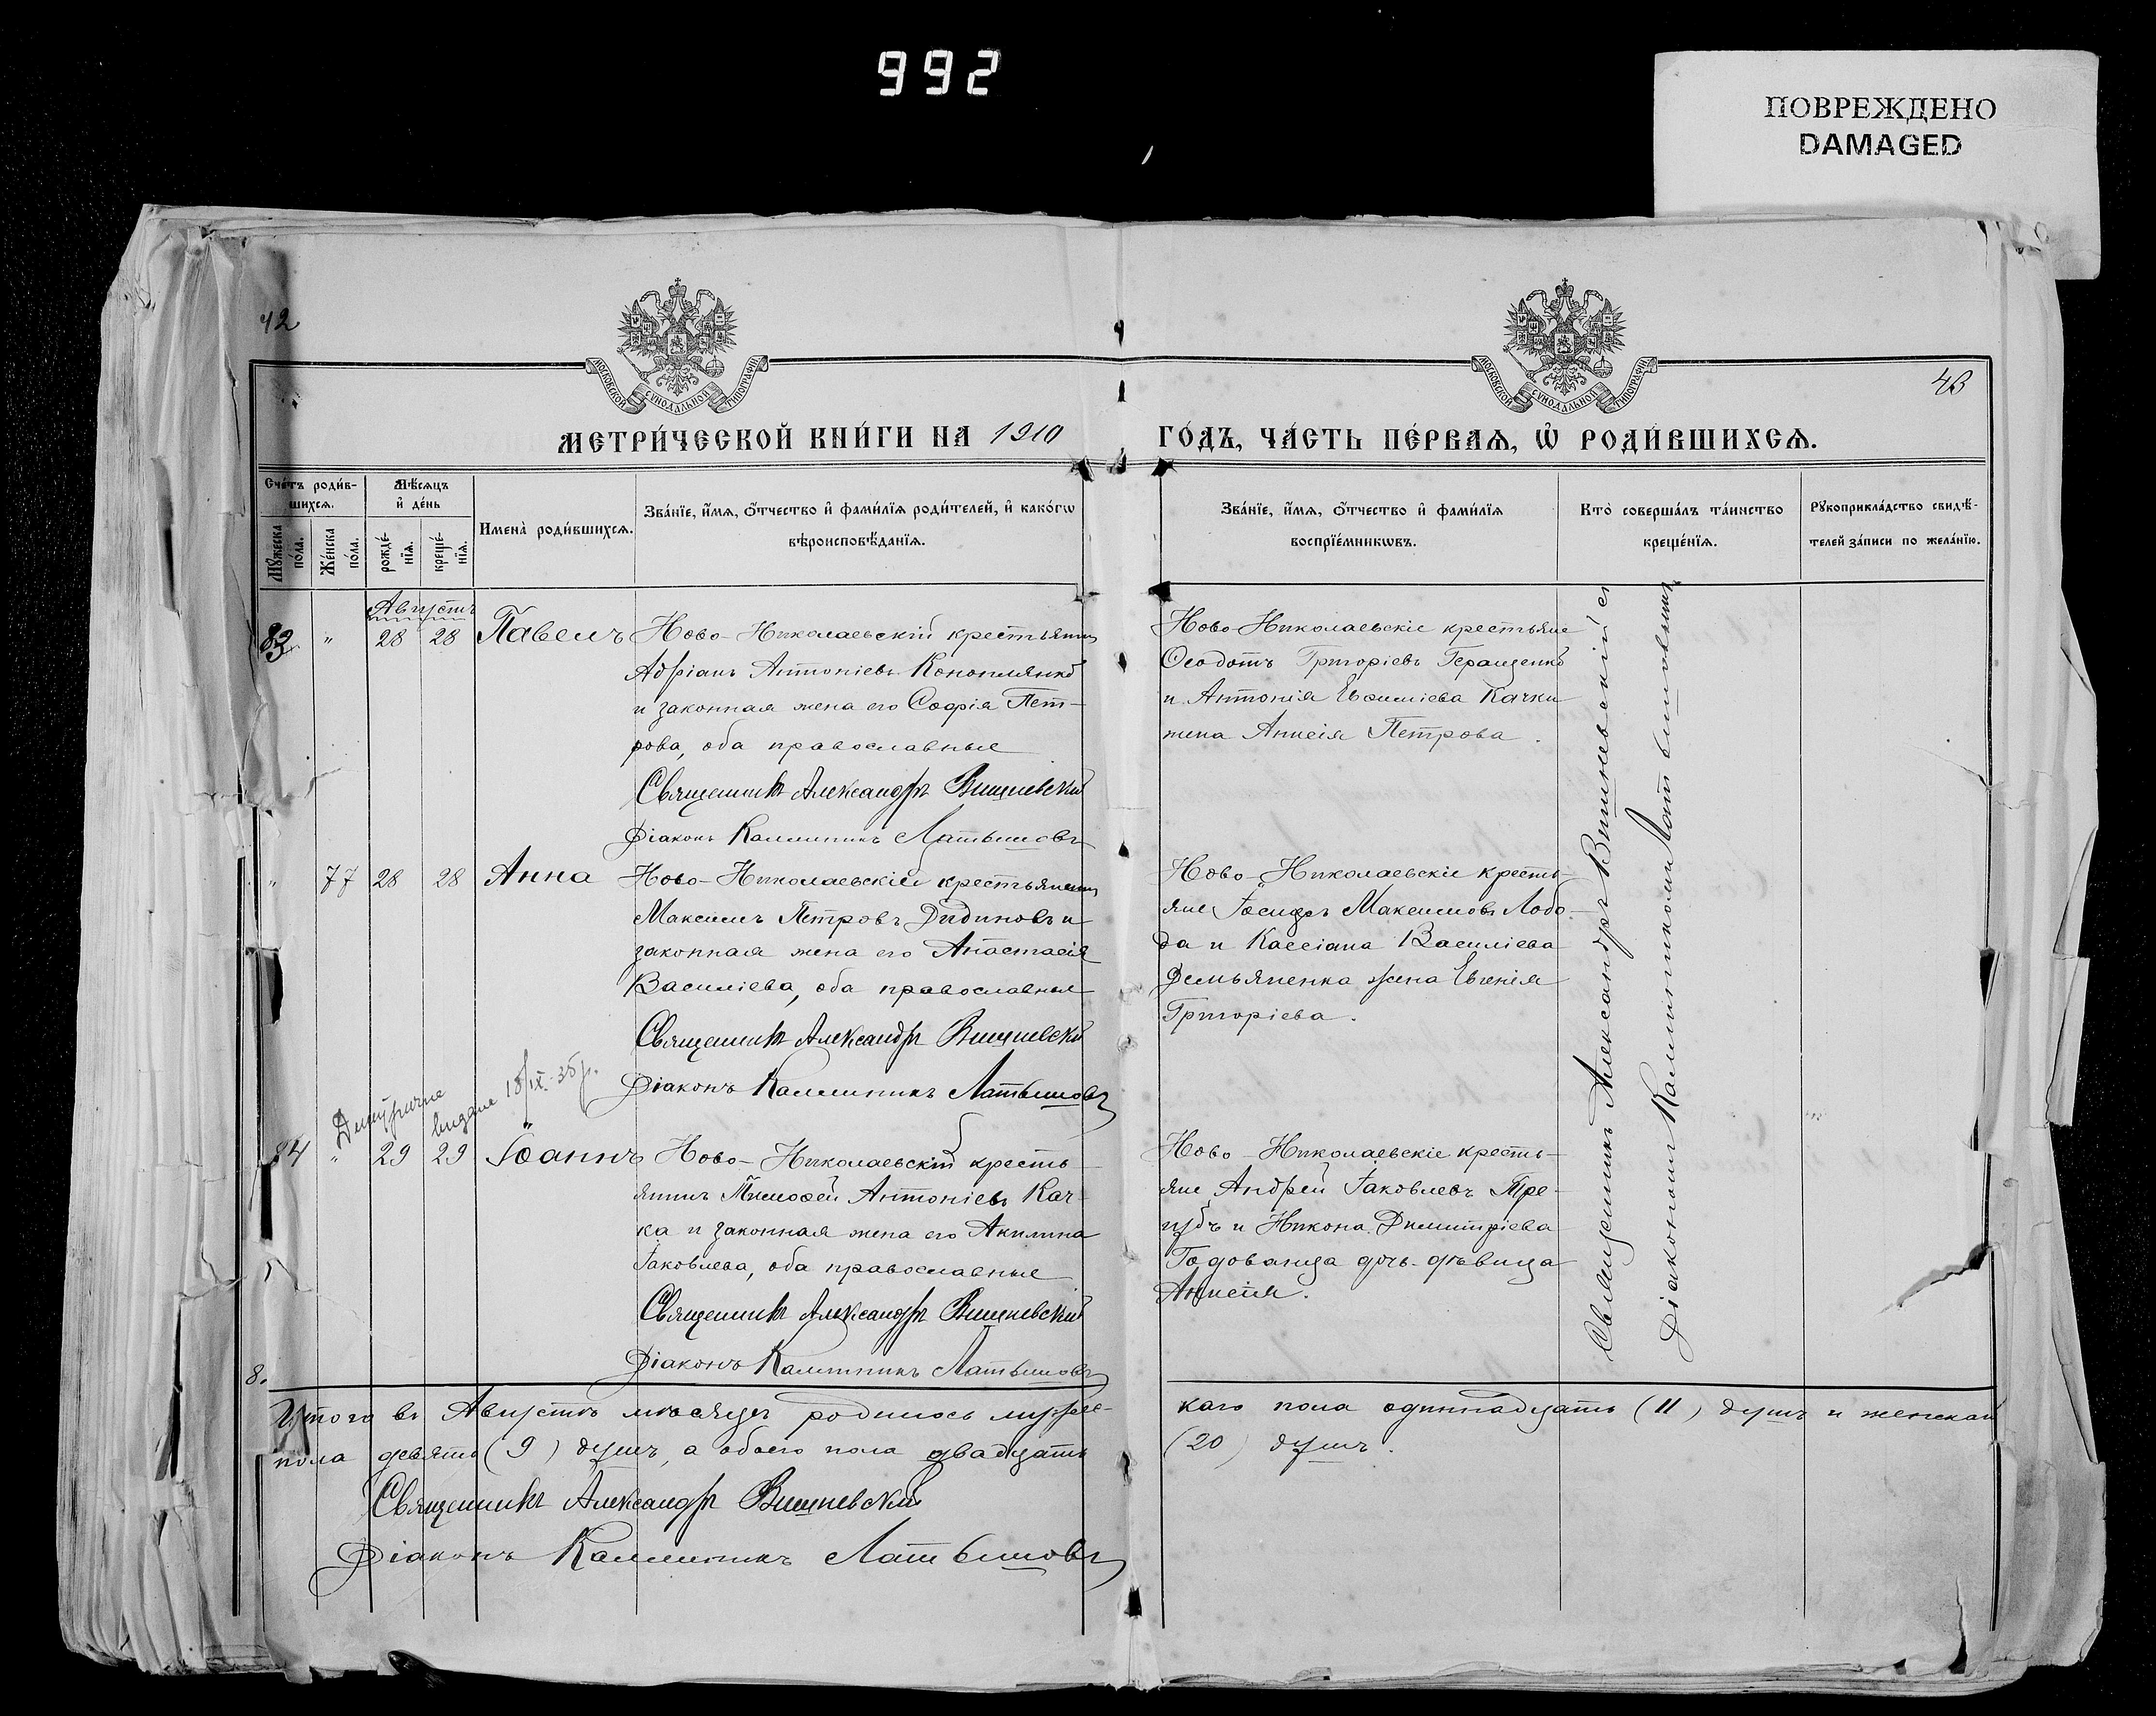 992
ПОВРЕЖДЕНО
DAMAGED
42
43
МОСКОВСКОЙ СУНОДАЛЬНОЙ ТИПОГРАФІИ
МОСКОВСКОЙ СУНОДАЛЬНОЙ ТИПОГРАФІИ
МЕТРИ́ЧЕСКОЙ КНИ́ГИ НА 1910
ГО́ДЪ, ЧА́СТЬ ПЕ́РВАѦ, Ѿ РОДИ́ВШИХСѦ.
Сче́тъ роди́в-
шихсѧ.
Мꙋ́жеска
по́ла.
Же́нска
по́ла.
Мѣ́сѧцъ
и҆ де́нь
рожде́-
нїѧ.
креще́-
нїѧ.
Имена̀ роди́вшихсѧ.
Зва́нїе, и҆́мѧ, ѻ҆́тчество и҆ фами́лїѧ роди́телей, и҆ како́гѡ
вѣроисповѣ́данїѧ.
Зва́нїе, и҆́мѧ, ѻ҆́тчество и҆ фами́лїѧ
воспрїе́мникѡвъ.
Кто̀ соверша́лъ та́инство
креще́нїѧ.
Рꙋкоприкла́дство свидѣ́-
телей за́писи по жела́нїю.
Августъ
83 " 28 28 Павелъ
Ново-Николаевскій крестьянинъ
Адріанъ Антоніевъ Коноплянко
и законная жена его Софія Пет-
рова, оба православные
Священникъ Александръ Вишневскій
Діаконъ Каллиникъ Латышовъ
Ново-Николаевскіе крестьяне
Ѳеодотъ Григоріевъ Геращенко
и Антонія Евфиміева Качки
жена Анисія Петрова.
" 77 28 28 Анна
Ново-Николаевскіе крестьянинъ
Максимъ Петровъ Дидиновъ и
законная жена его Анастасія
Василіева, оба православные
Священникъ Александръ Вишневскій
Діаконъ Каллиникъ Латышовъ
Ново-Николаевскіе кресть-
яне Іосифъ Максимовъ Лобо-
да и Кассіана Василіева
Демьяненка жена Евгенія
Григоріева.
видане 18/IX-35р.
84 " 29 29 Іоаннъ
Ново-Николаевскій кресть-
янинъ Тимоѳей Антоніевъ Кач-
ка и законная жена его Акилина
Іаковлева, оба православные
Священникъ Александръ Вишневскій
Діаконъ Каллиникъ Латышовъ
Ново-Николаевскіе кресть-
яне Андрей Іаковлевъ Тре-
губъ и Никона Димитріева
Годованца дочь-дѣвица
Анисія.
Священникъ Александръ Вишневскій съ
Діакономъ Каллиникомъ Латышовымъ
8.
Итого въ Августѣ мѣсяцѣ родилось мужес-
каго пола одиннадцать (11) душъ и женскаго
пола девять (9) душъ, а обоего пола двадцать
(20) душъ.
Священникъ Александръ Вишневскій
Діаконъ Каллиникъ Латышовъ